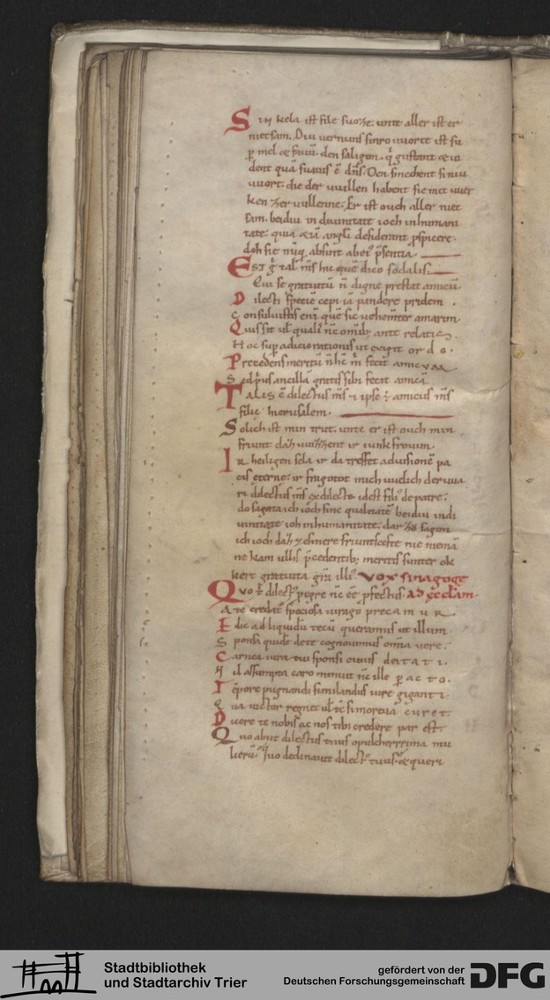 Sin kela ist file suozze. unte aller ist er
nietsam. Diu vernunst sinro uuorte ist su
p mel & fauum. den saligon. q gustant & ui
dent quā suauis ē dns. Den smechent siniu
uuort. die der uuillen habent sie mit uuer
ken zeruullenne. Er ist ouch aller niet
sam. beidiu in diuinitate ioch in humani
tate. quia & iā angli desiderant pspicere.
doh sie nūq absint ab ei psentia.
Est g tal nis hic quē dico sodalis.
Qui se gratuitū n digne prestat amicū
Dilecti speciē cepi iā pandere pridem.
Consuluistis enī quē sic uehemter amarim
Quis sit ul qualis ne omib ante relatis
Hoc sup adicio rationis ut exigit ordo.
Precedens meritū n hc m fecit amicum
Sed pius ancillā gratis sibi fecit amicā
Talis ē dilectus ms & ipse ē amicus ms
filie hierusalem.
Solich ist min trut. unte er ist ouch min
friunt daz uuizzent ir iunkfrouun.
Ir heiligen sela ir da treffet ad uisionē pa
cis eternę. ir fragotot mich uuelich der uua
ri dilectus ms ex dilecto. id est fili de patre.
do sageta ich ioch sine qualitatē beidiu in di
uinitate ioh in humanitate. dar zuo sagon
ich ioch daz ze sinere friuntscefte nie nieman
ne kam ullis pcedentib meritis sunter ok
kere gratuita gra illi. Vox sinagoge
Quo ē dilect pegre nc ēē pfectus ad ęcclam
A te credite speciosa uirago precamur
Edic ad liquidū tecū queramus ut illum
Sponsi quidē dete cognouimus omia uere.
Carnea uera tui sponsi ciuius deitati.
Nil assumpta caro minuit ne ille pacto.
Tpore pugnandi similandus iure giganti
Qua uictor regnet ul te si morum curet
Dicere te nobis ac nos tibi credere par est
Quo abiit dilectus tuus o pulcherrima mu
lierū. quo declinauit dilect tuus. & queri
Stadtbibliothek
und Stadtarchiv Trier
gefördert von der
Deutschen Forschungsgemeinschaft
DFG